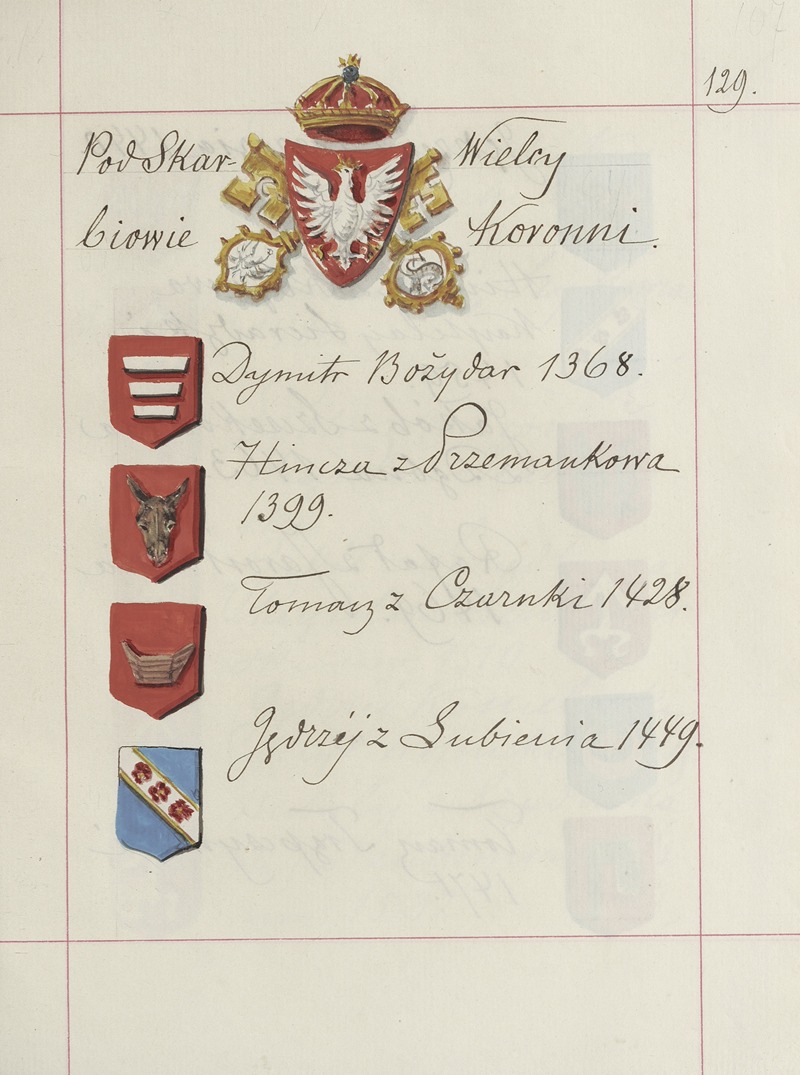 129.
Podskar- Wielcy
biowie Koronni.
Dymitr Bożydar 1368.
Hincza z Przemankowa
1399.
Tomasz z Czarnki 1428.
Jędrzéj z Lubienia 1449.